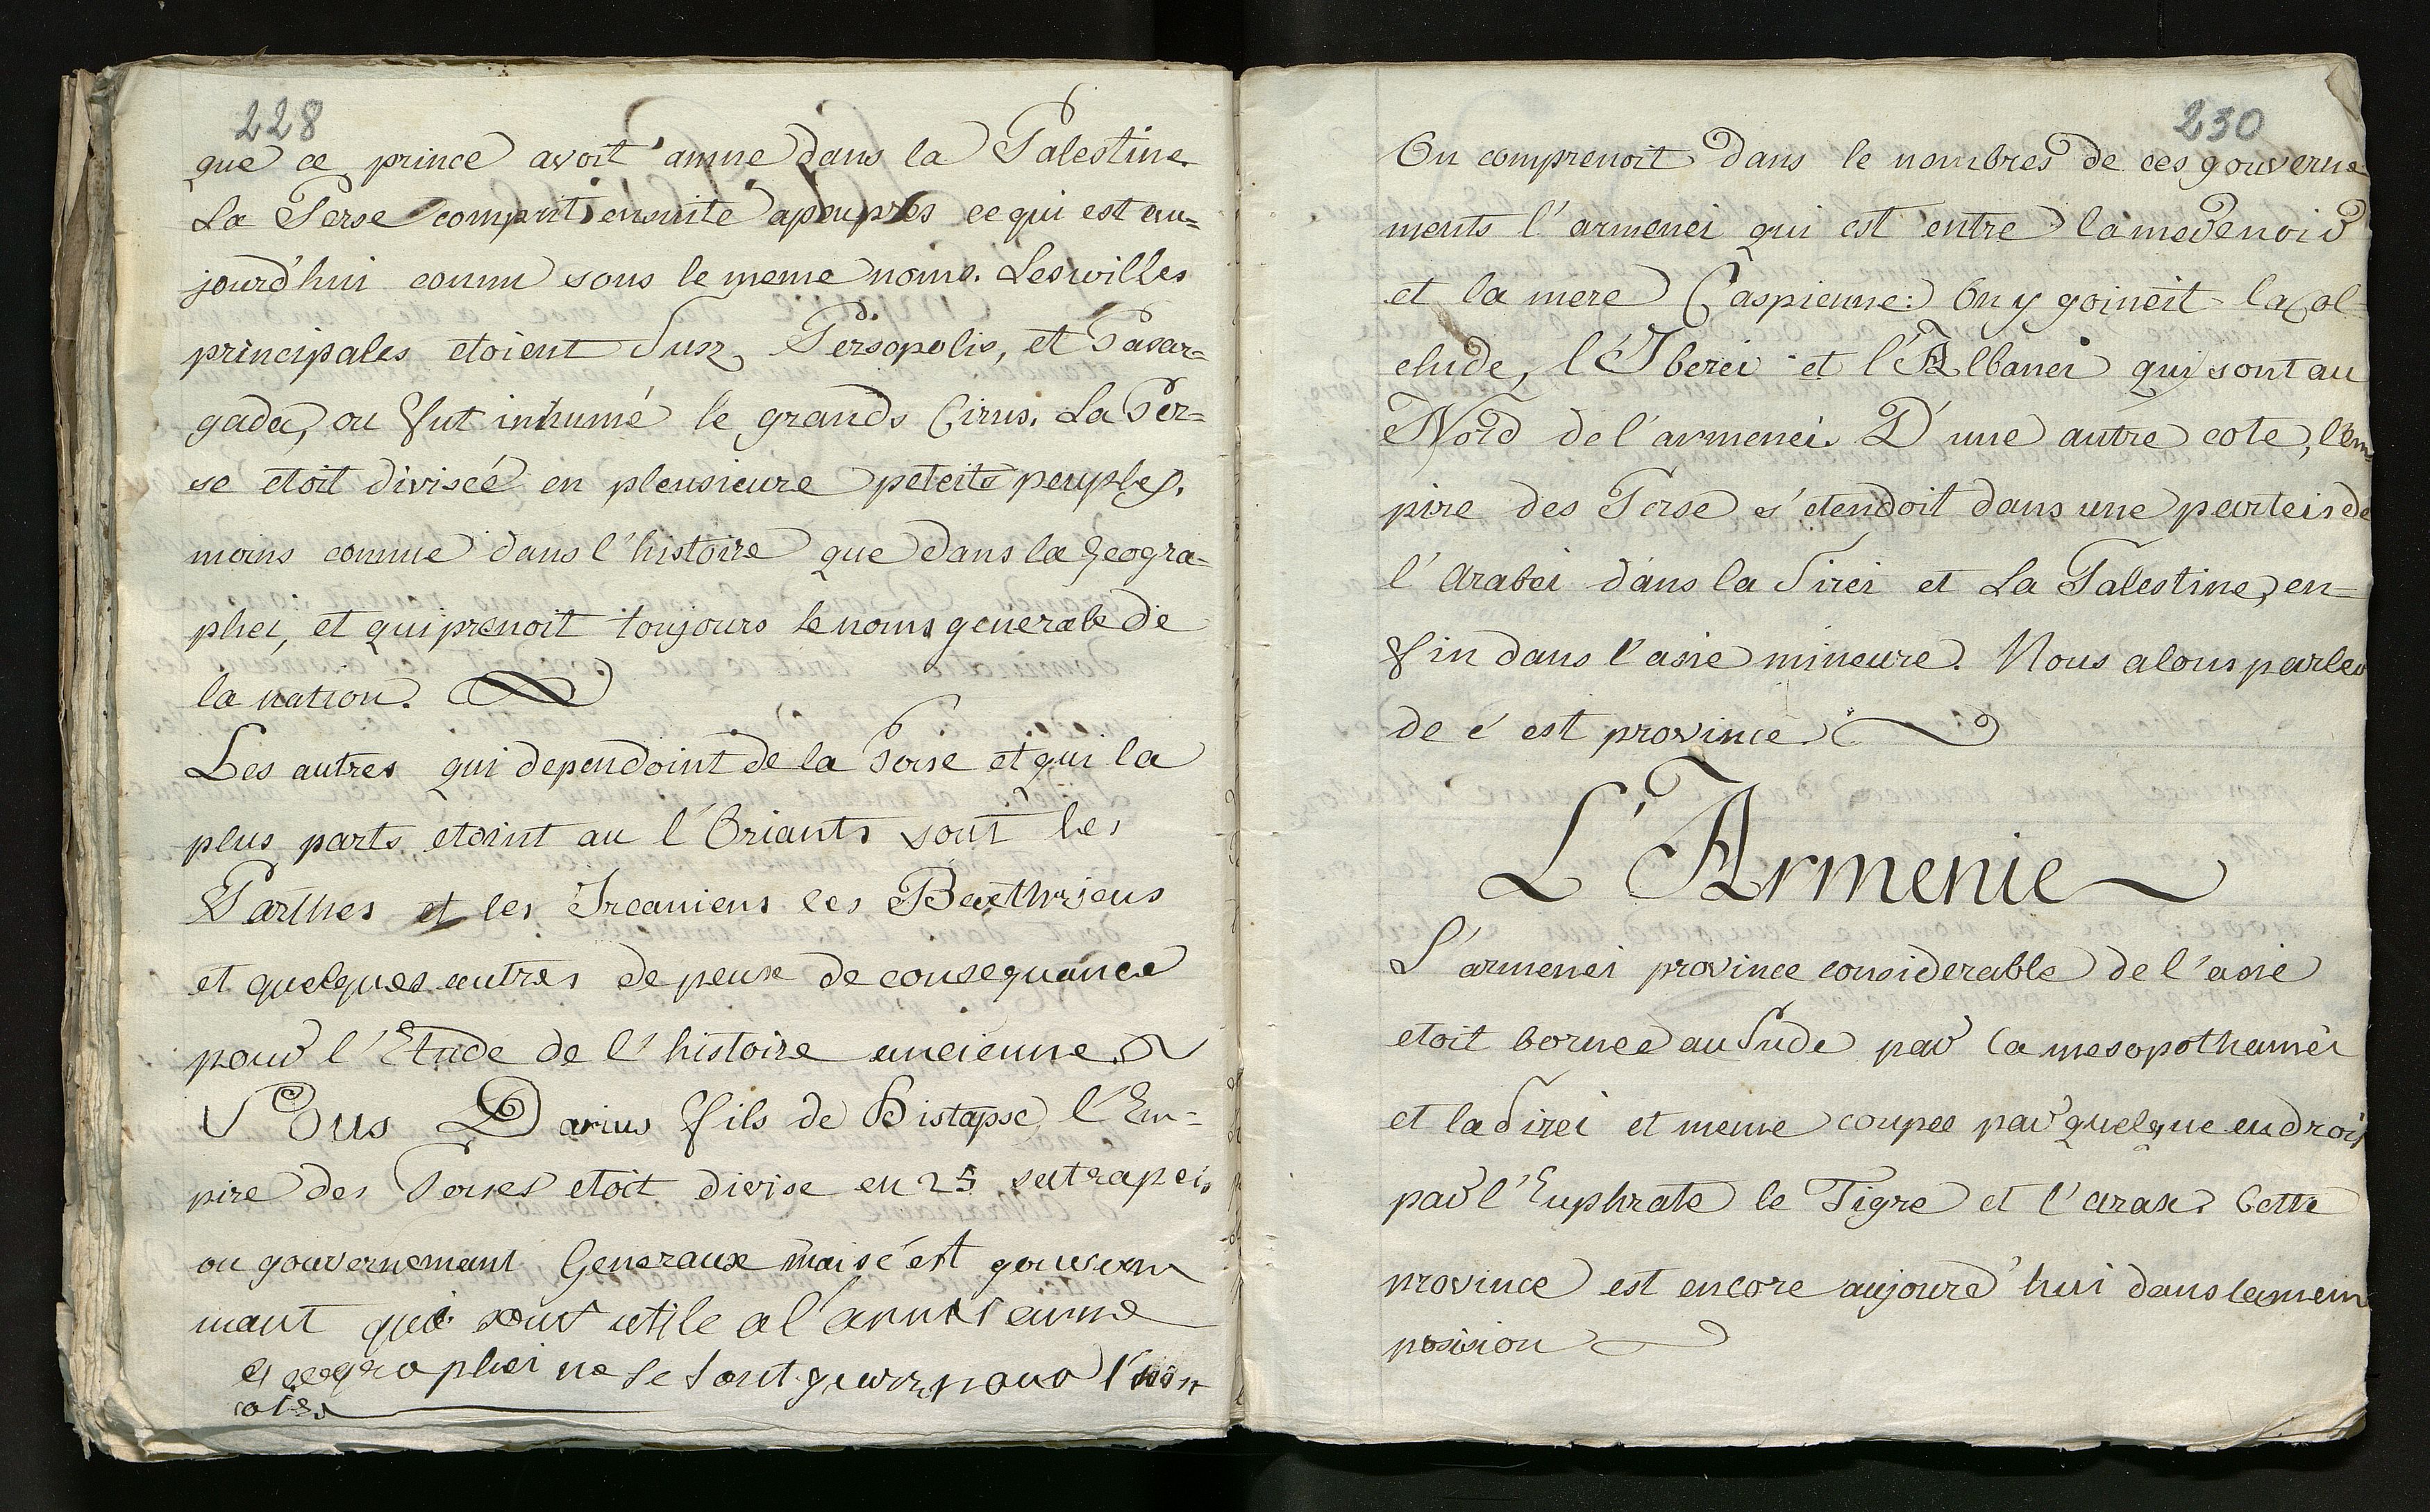 228
que ce prince avoit amne dans la Palestine
La Perse comprit ensuite apeuprés ce qui est au=
jourd'hui connu sous le meme noms. Les villes
principales etoient Suze, Persopolis, et Pasar=
gada, ou fut inhumé le grands Cirus. La Per=
se etoit diviséé en pleusieure peteits peuples.
moins connue dans l'histoire que dans la Geogra=
phei, et qui prenoit toujours le noms generale de
la nation.
Les autres qui dependoint de la Perse et qui la
plus parts etoint au l'Oriants sont les
Parthes et les Ircaniens les Bacthriens
et quelques autres de peux de consequance
pour l'Etude de l'histoire ancienne.
Sous Darius fils de Histapse l'Em=
pire des Perses etoit divise en 25 satrapeis
ou gouvernemant Generaux mais c'est gouvern
mant qui sont utile a l'
Geographei ne se sont
230
On comprenoit dans le nombres de ces gouverne
ments l'armenei qui est entre la mere noir
et la mere Caspienne: On y goineit la Col=
chide, l'Iberei et l'Albanei qui sont au
Nord de l'armenei. D'une autre cote, l'em=
pire des Perse s'etendoit dans une parteis de
l'Arabei dans la Sirei et La Palestine, en=
fin dans l'asie mineure. Nous alons parler
de c'est province.
L'Armenie
L'armenei province considerable de l'asie
etoit bornee au Sude par la mesopothamei
et la Sirei et meme coupee par quelque endrois
par l'Euphrate le Tigre et l'arax. Cette
province est encore aujourd'hui dans la mem
posision